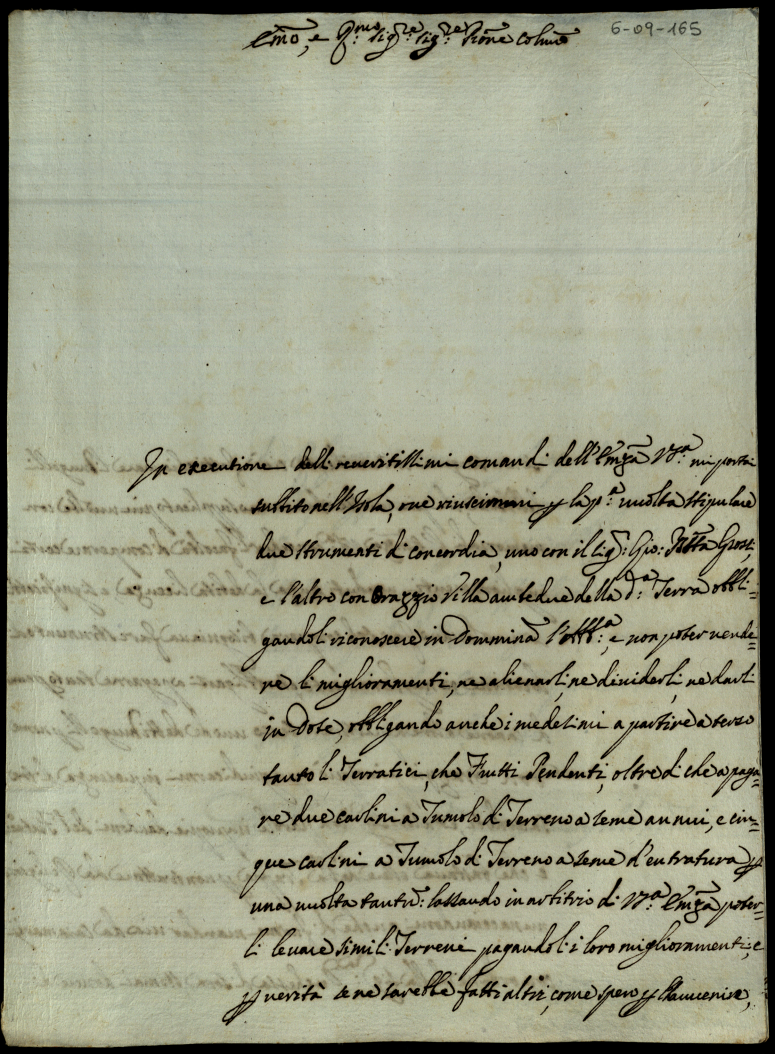 6-09-165
Emõ, e R.mo Sig.re Sig.re Prone Colmo
In executione delli reveritissimi comandi dell'Emza V.ra mi portai
subbito nell'Isola, ove riuscimeni p la p.a uuolta stipulare
due strumenti di concordia, uno con il Sig.r Gio: Btta Grossi,
e l'altro con Orazzio Villa ambedue della d.a Terra obbli=
gandoli riconoscere in Domminã l'Abb.a, e non poter vende=
re li miglioramenti, ne alienarli, ne dividerli, ne darli
in Dote, obbligando anche i medesimi a partire a terzo
tanto li Terratici, che Frutti Pendenti, oltre di che a paga=
re due carlini a Tumolo di Terreno a seme annui, e cin=
que carlini a Tumolo di Terreno a seme d'entratura p
una uuolta tant.: lassando in arbitrio di V.ra Emza poter=
li levare simili Terreni pagandoli i loro miglioramenti, e
p verità se ne sarebbe fatti altri, come spero p l'auuenire,